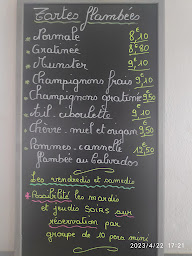 Tartes flambées
* Normale 8,10
* Gratinée 8,80
* Munster 9,10
* Champignons frais 9,10
* Champignons gratinée 9,50
* Ail. ciboulette 9,10
* Chèvre. miel et origan 9,50
* Pommes. cannelle 12,50
flambée au Calvados
Les vendredis et samedis
* Possibilité les mardis
et jeudis soirs sur
réservation par
groupe de 10 pers mini
2023/4/22 17:21